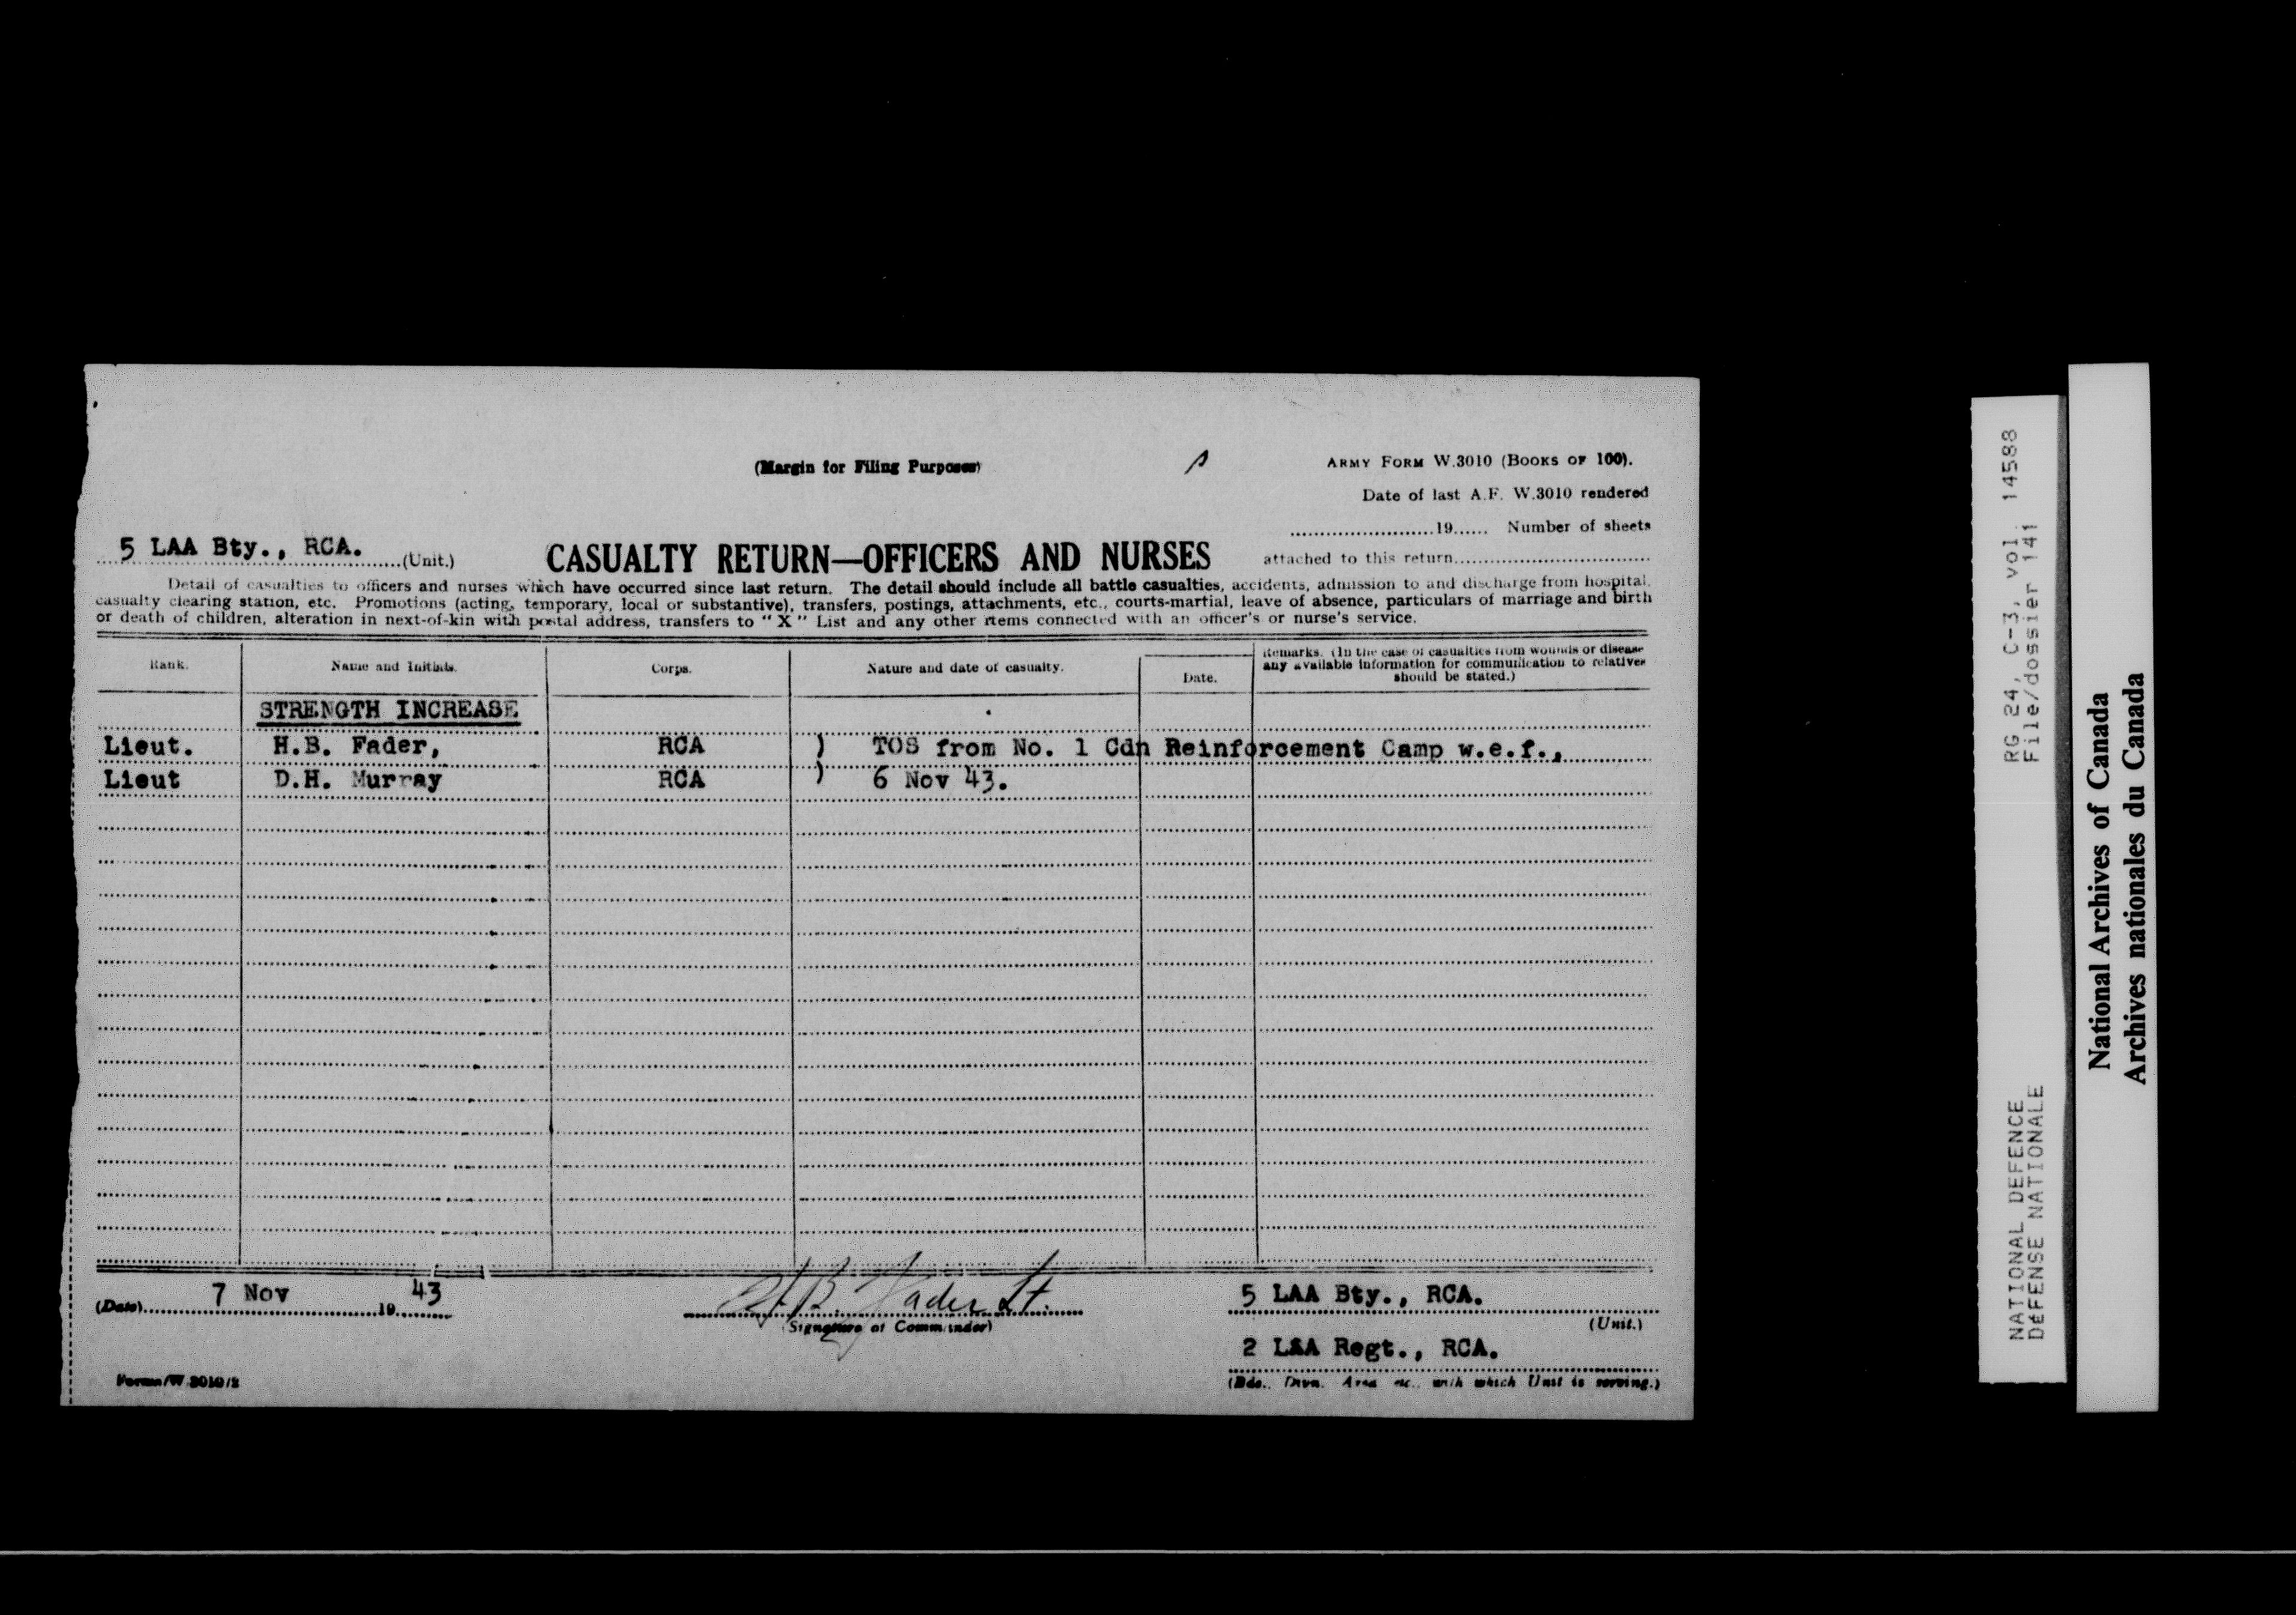 (Margin for Filing Purposes)
ARMY FORM W.3010 (BOOKS OF 100).
Date of last A.F. W.3010 rendered
......................19...... Number of sheets
attached to this return..............................
5 LAA Bty., RCA. (Unit.)
CASUALTY RETURN—OFFICERS AND NURSES
Detail of casualties to officers and nurses which have occurred since last return. The detail should include all battle casualties, accidents, admission to and discharge from hospital,
casualty clearing station, etc. Promotions (acting, temporary, local or substantive), transfers, postings, attachments, etc., courts-martial, leave of absence, particulars of marriage and birth
or death of children, alteration in next-of-kin with postal address, transfers to "X" List and any other items connected with an officer's or nurse's service.
Rank. Name and Initials. Corps. Nature and date of casualty. Date. Remarks. (In the case of casualties from wounds or disease
any available information for communication to relatives
should be stated.)
STRENGTH INCREASE
Lieut. H.B. Fader, RCA ) TOS from No. 1 Cdn Reinforcement Camp w.e.f.,
Lieut D.H. Murray RCA ) 6 Nov 43.
(Date) 7 Nov 19 43
H.B. Fader Lt.
(Signature of Commander)
5 LAA Bty., RCA.
(Unit.)
2 LAA Regt., RCA.
(Bde., Divn. Area etc., with which Unit is serving.)
Forms/W.3010/2
RG 24, C-3, vol. 14588
File/dossier 141
NATIONAL DEFENCE
DEFENSE NATIONALE
National Archives of Canada
Archives nationales du Canada